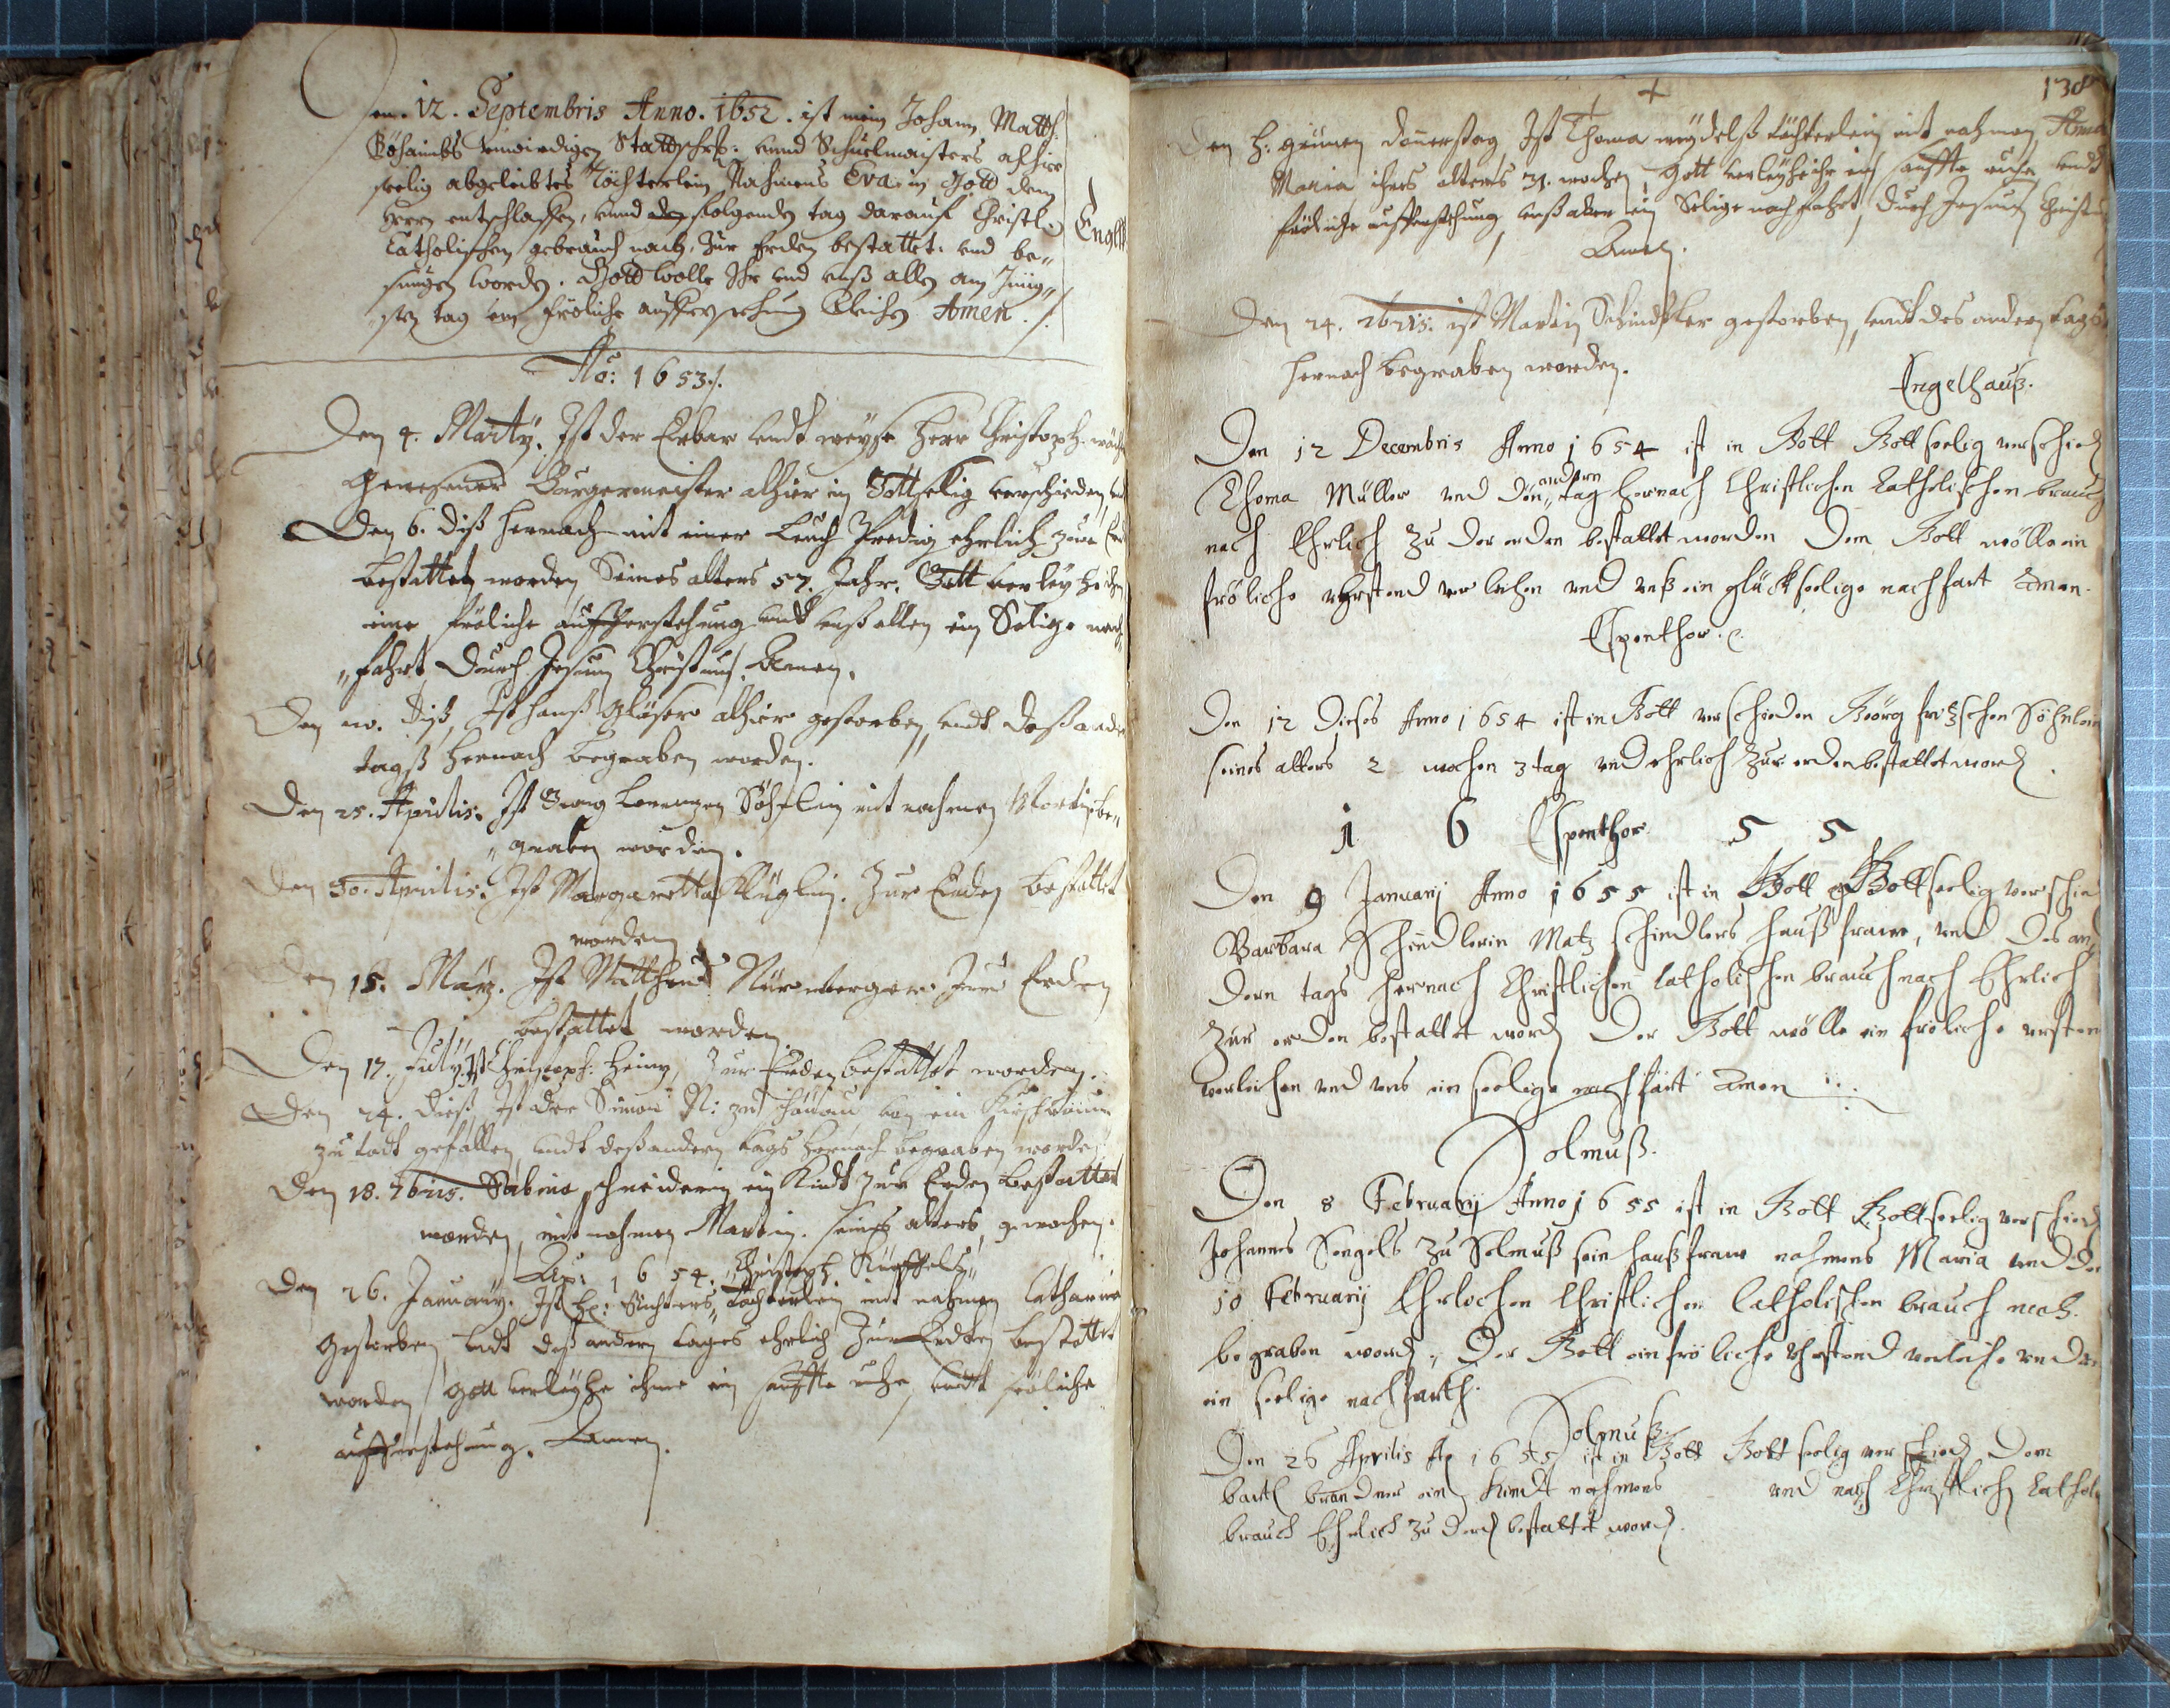 Den 12. Septembris Anno. 1652. ist mein Johann Matth.
Böhaimbs unwirdigen Stattschrb. unnd Schuelmaisters alhier
seelig abgeleibtes Töchterlein Nahmens Eva in Gott dem
Herrn entschlaffen, unnd den folgenden tag darauf Christl.
Catholischen gebrauch nach, zur Erden bestattet und be„
sungen worden. Gott wolle Ihr und unß allen am Jüng„
sten tag ein fröliche aufferstehung verleihen Amen ./.
Engelh
Aõ: 1653 ./.
Den 4. Martÿ. Ist der Erbar undt weyse Herr Christoph
Gewesener Burgermeister alhier in Gott selig verschieden, und
Den 6. diß hernach mit einer Leuch Predig ehrlich zur Erd
bestattet worden, Seines alters 57. Jahr. Gott verleyhe ihm
eine fröliche aufferstehung undt unß allen ein Selige nach
„fahrt durch Jesum Christum, Amen.
Den 10. diß, Ist Hanß Gläser alhier gestorben, undt deß ander
tagß hernach begraben worden.
Den 25. Aprilis. Ist Georg Lorenzen Söhnlein mit nahmen Martin be„
„graben worden.
Den 30. Aprilis. Ist Margaretta Klüglin. Zur Erden bestattet
worden
Den 15. März. Ist Mattheus Nürnberger Zur Erden
bestattet worden
Den 17. Julÿ. Ist Christoph: Heinz, Zur Erden bestattet worden.
Den 24. dieß, Ist der Simon N: zu Schönau von ein Kirschbaum
zu todt gefallen, undt deß andern tags hernach begraben worden
Den 18. 7bris. Sabina Schneiderin ein Kindt zur Erden bestattet
worden, mit nahmen Martin. seines alters, 9 wochen.
Aõ: 1654. Christoph Küeffels
Den 26. Januarÿ. Ist H: Richters, Töchterlein mit nahmen Catharina
gestorben, undt deß andern tages ehrlich Zur Erden bestattet
worden / Gott verleyhe ihme ein sanffte ruhe, undt fröliche
aufferstehung. Amen.
138
Den H. grünen donnerstag Ist Thoma weydelß töchterlein mit nahmen Anna
Maria ihres alterß 31. wochen, Gott verleyhe ihr ein sanffte ruhe undt
fröliche aufferstehung unß aber ein Selige nachfahrt, durch Jesum Christum
Amen.
Den 24. 9bris. ist Martin Schindtler gestorben, undt des andern tags
hernach begraben worden.
Engelhauß.
Den 12 Decembris Anno 1654 ist in Gott Gottseelig verschied
Thoma Müller und den andern tag hernach Christlichen Catholischen brauch
nach Ehrlich zu der erden bestattet worden Dem Gott wölle ein
fröliche uhrstend verleihen und unß ein glückseelige nachfart Amen.
Espenthor.
Den 12 Dieses Anno 1654 ist in Gott verschieden Geörg fritzschen Söhnlein
seines alters 2 wochen 3 tag und ehrlich zur erden bestattet word.
1 6 Espenthor 5 5
Den 9 Januarij Anno 1655 ist in Gott Gottseelig verschied
Barbara Schindlerin Matz Schindlers haußfraw, und des an
dern tags hernach Christlichen Catholischen brauch nach Ehrlich
zur erden bestattet word Der Gott wölle ein fröliche ursten
verleihen und uns ein seelige nachfart Amen
Solmuß.
Den 8 Februarij Anno 1655 ist in Gott Gottseelig verschied
Johannes Sengels zu Solmuß sein haußfraw nahmens Maria und den
10 Februarij Ehrlichen Christlichen Catholischen brauch nach
begraben word. Der Gott ein fröliche uhrstend verleihe und uns
ein seelige nachfarth.
Solmuß.
Den 26 Aprilis Aõ 1655 ist in Gott Gottseelig verschied Dem
bartl brandner ein Kindt nahmens und nach Christlich Cathol
brauch Ehrlich zu der bestattet word.